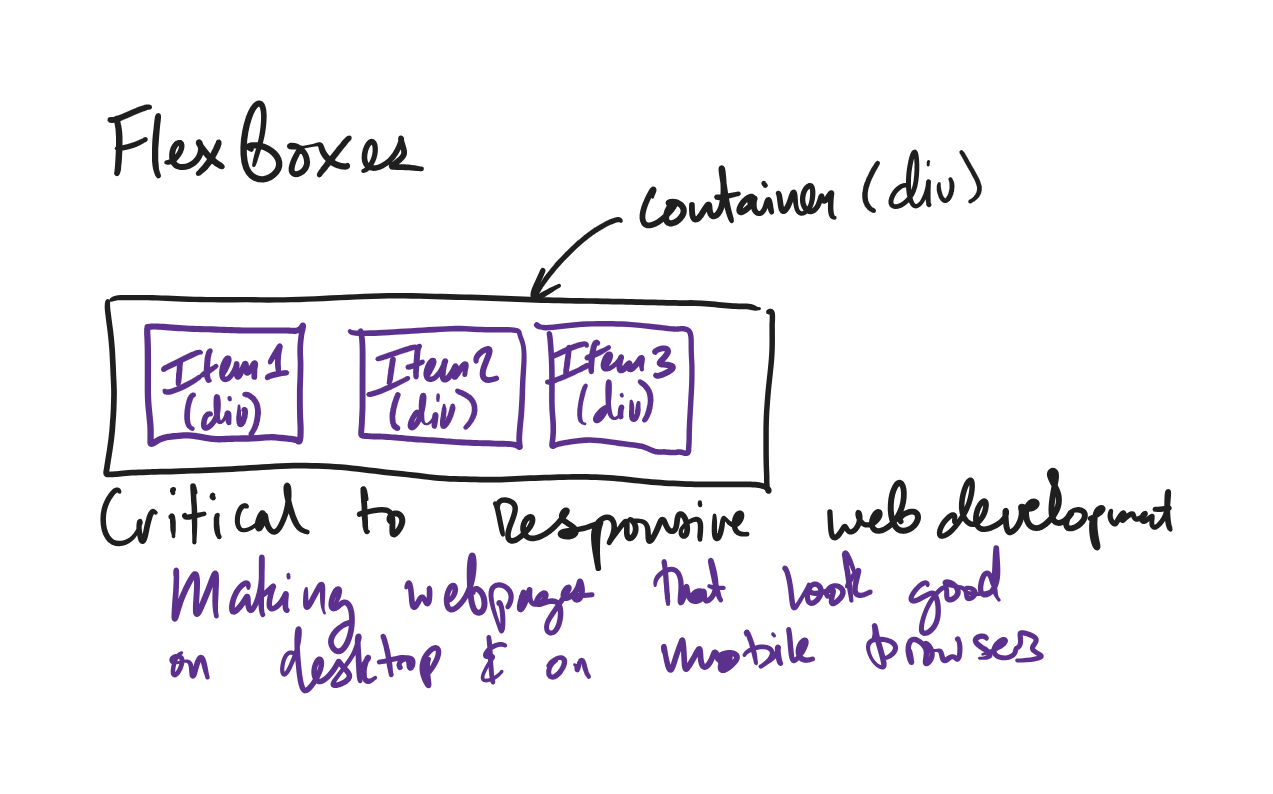 Flexboxes
container (div)
Item 1
(div)
Item 2
(div)
Item 3
(div)
Critical to Responsive web development
Making webpages that look good
on desktop & on mobile browsers